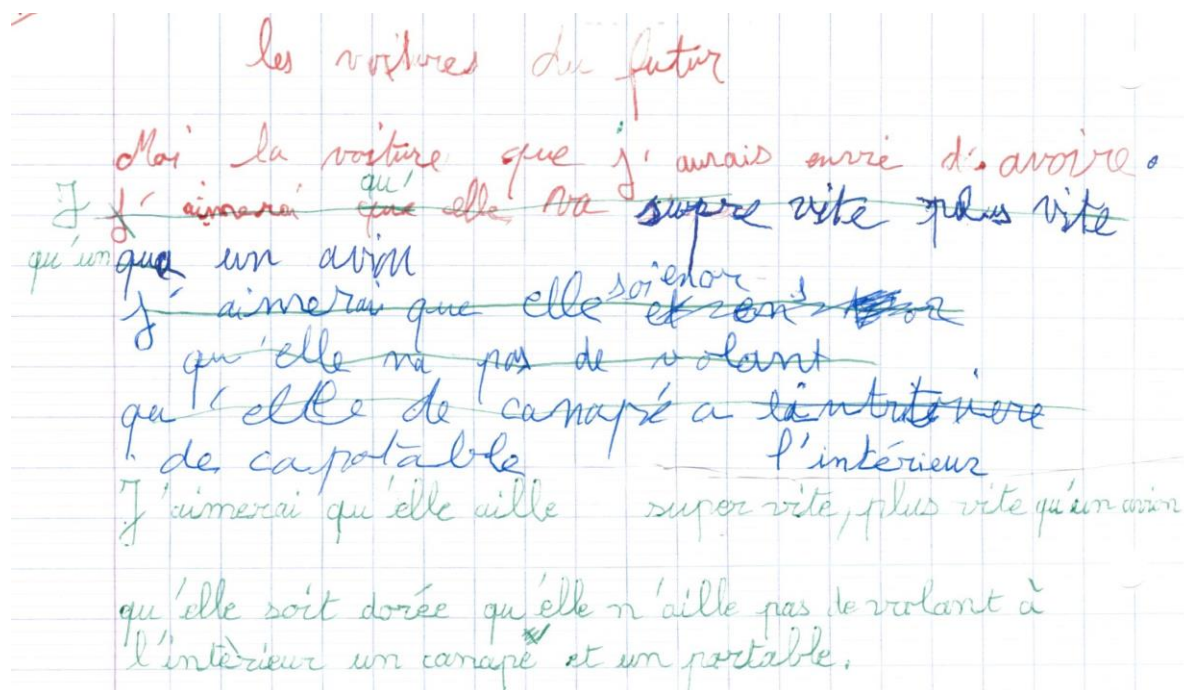 les voitures du futur
Moi la voiture que j'aurais envie d'avoire.
J j'aimerai que qu' elle va supre vite plus vite
qu'un que un avin
j'aimerai que elle soi enor et en or
qu'elle na pas de volant
qu'elle de canapé a
de capotable l'intérieur
J'aimerai qu'elle aille super vite, plus vite qu'un avion
qu'elle soit dorée qu'elle n'aille pas de volant à
l'intèrieur un canapé et un portable.